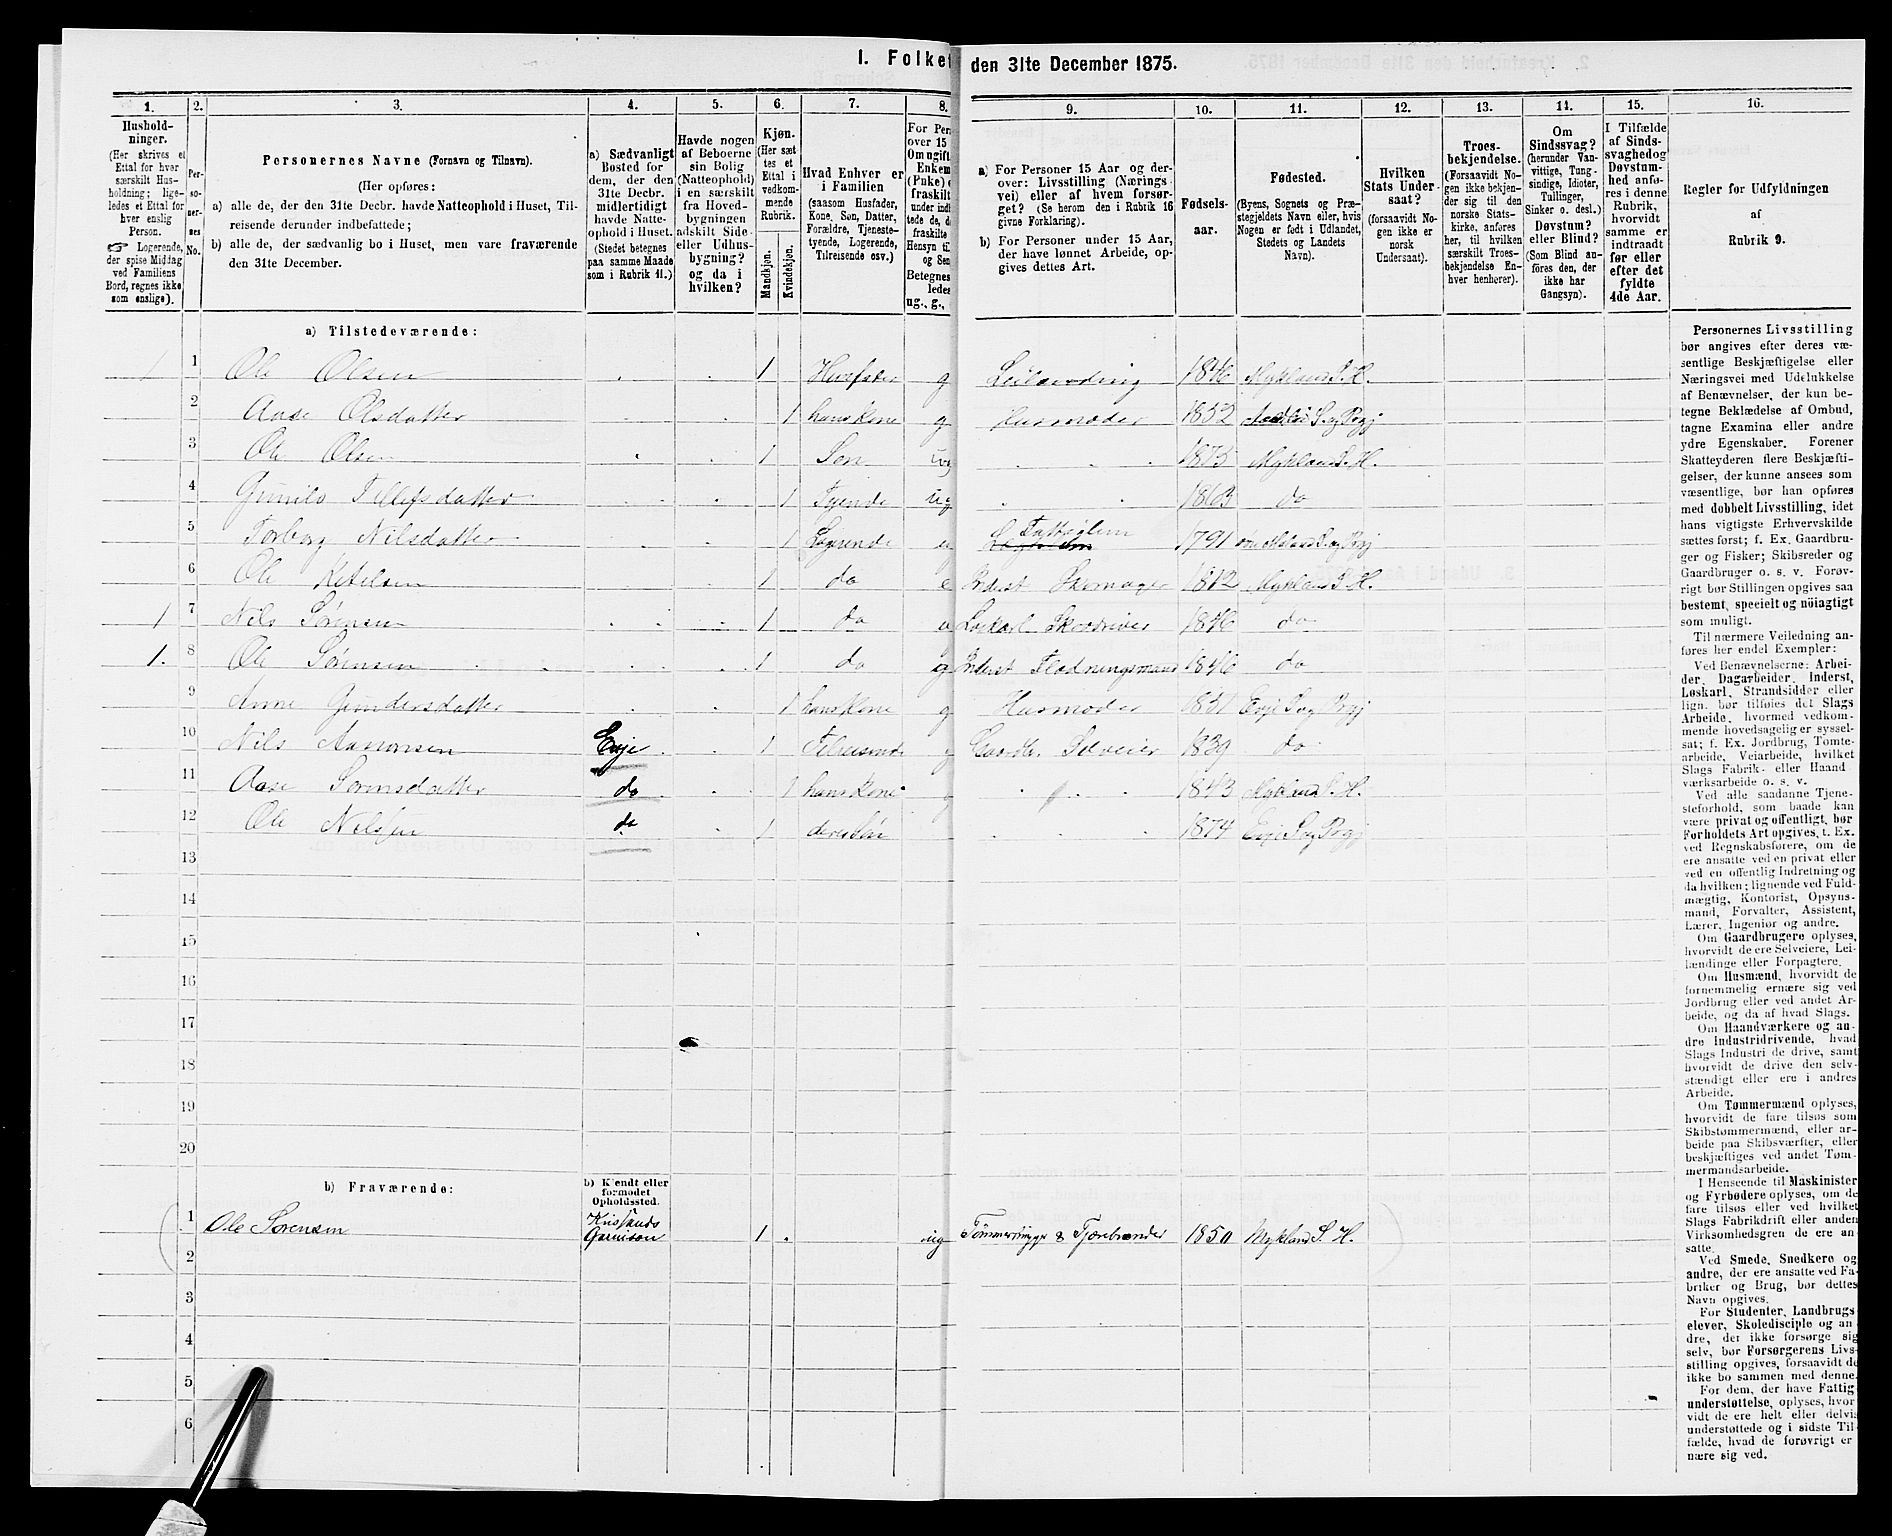 I. Folket
den 31te December 1875.
1. 2. 3. 4. 5. 6. 7. 8. 9. 10. 11. 12. 13. 14. 15. 16.
Hushold-
ninger.
(Her skrives et
Ettal for hver
særskilt Hus-
holdning; lige-
ledes et Ettal for
hver enslig
Person.
☞ Logerende,
der spise Middag
ved Familiens
Bord, regnes ikke
som enslige).
Per-
so-
ner-
nes
No.
Personernes Navne (Fornavn og Tilnavn).
(Her opføres:
a) alle de, der den 31te Decbr. havde Natteophold i Huset, Til-
reisende derunder indbefattede;
b) alle de, der sædvanlig bo i Huset, men vare fraværende
den 31te December.
a) Sædvanligt
Bosted for
dem, der den
31te Decbr.
midlertidigt
havde Natte-
ophold i Huset.
(Stedet betegnes
paa samme Maade
som i Rubrik 11.)
Havde nogen
af Beboerne
sin Bolig
(Natteophold)
i en særskilt
fra Hoved-
bygningen
adskilt Side-
eller Udhus-
bygning?
og da i
hvilken?
Kjøn.
(Her sæt-
tes et
Ettal i
vedkom-
mende
Rubrik.
Mandkjøn.
Kvindekjøn.
Hvad Enhver er
i Familien
(saasom Husfader,
Kone, Søn, Datter,
Forældre, Tjeneste-
tyende, Logerende,
Tilreisende osv.)
For Pers
over 15
Om ugift
Enkem
(Enke) e
fraskilt
under ind
tede de, d
fraskilte
Hensyn til
og Sen
Betegnes
ledes
ug., g.,
a) For Personer 15 Aar og der-
over: Livsstilling (Nærings-
vei) eller af hvem forsør-
get? (Se herom den i Rubrik 16
givne Forklaring).
b) For Personer under 15 Aar,
der have lønnet Arbeide, op-
gives dettes Art.
Fødsels-
aar.
Fødested.
(Byens, Sognets og Præ-
stegjeldets Navn eller, hvis
Nogen er født i Udlandet,
Stedets og Landets
Navn).
Hvilken
Stats Under-
saat?
(forsaavidt No-
gen ikke er
norsk
Undersaat).
Troes-
bekjendelse.
(Forsaavidt No-
gen ikke bekjen-
der sig til den
norske Stats-
kirke, anføres
her, til hvilken
særskilt Troes-
bekjendelse En-
hver henhører).
Om
Sindssvag?
(herunder Van-
vittige, Tung-
sindige, Idioter,
Tullinger,
Sinker o. desl.)
Døvstum?
eller Blind?
(Som Blind an-
føres den, der
ikke har
Gangsyn).
I Tilfælde
af Sinds-
svaghed og
Døvstum-
hed anfø-
res i denne
Rubrik,
hvorvidt
samme er
indtraadt
før eller
efter det
fyldte
4de Aar.
Regler for Udfyldningen
af
Rubrik 9.
a) Tilstedeværende:
1 1 Ole Olsen 1 Husfader g Leilænding 1846 Mykland S. H.
2 Aase Olsdatter 1 hans Kone g Husmoder 1852 S. og Prgj
3 Ole Olsen 1 Søn ug 1875 Mykland S. H.
4 Gunild Tellefsdatter 1 Tyende ug 1863 do
5 Torborg Nilsdatter 1 Logerende 1791 S. og Prgj
6 Ole Ketelsen 1 do e Inderst Skomager 1812 Mykland S. H.
1 7 Nils Sørensen 1 do Løskarl 1846 do
1. 8 Ole Sørensen 1 do g Inderst Flødningsmand 1846 do
9 Anne Gundersdatter 1 hans Kone g Husmoder 1831 Evje S. og Prgj
10 Nils Aanonsen Evje 1 Tilreisende g Gaardbr. Selveier 1839 do
11 Aase Sørensdatter do 1 hans Kone g 1843 Mykland S. H.
12 Ole Nilsen do 1 deres Søn 1874 Evje S. og Prgj
13
14
15
16
17
18
19
20
b) Fraværende:
b) Kjendt eller
formodet
Opholdssted.
1 Ole Sørensen Krissands Garnison 1 ug Tømmerhugger & Tjærebrænder 1850 Mykland S. H.
2
3
4
5
6
Personernes Livsstilling
bør angives efter deres væ-
sentlige Beskjæftigelse eller
Næringsvei med Udelukkelse
af Benævnelser, der kun be-
tegne Beklædelse af Ombud,
tagne Examina eller andre
ydre Egenskaber. Forener
Skatteyderen flere Beskjæfti-
gelser, der kunne ansees som
væsentlige, bør han opføres
med dobbelt Livsstilling, idet
hans vigtigste Erhvervskilde
sættes først; f. Ex. Gaardbru-
ger og Fisker; Skibsreder og
Gaardbruger o. s. v. Forøv-
rigt bør Stillingen opgives saa
bestemt, specielt og nöiagtigt
som muligt.
Til nærmere Veiledning an-
føres her endel Exempler:
Ved Benævnelserne: Arbei-
der, Dagarbeider, Inderst,
Løskarl, Strandsidder eller
lign. bør tilføies det Slags
Arbeide, hvormed vedkom-
mende hovedsagelig er syssel-
sat; f. Ex. Jordbrug, Tomte-
arbeide, Veiarbeide, hvilket
Slags Fabrik- eller Haand
værksarbeide o. s. v.
Ved alle saadanne Tjene-
steforhold, som baade kan
være privat og offentligt, bør
Forholdets Art opgives, t. Ex.
ved Regnskabsførere, om de
ere ansatte ved en privat eller
ved en offentlig Indretning og
da hvilken; lignende ved Fuld-
mægtig, Kontorist, Opsyns-
mand, Forvalter, Assistent,
Lærer, Ingeniør og andre.
Om Gaardbrugere oplyses,
hvorvidt de ere Selveiere, Lei-
lændinge eller Forpagtere.
Om Husmænd, hvorvidt de
fornemmelig ernære sig ved
Jordbrug eller ved andet Ar-
beide, og da af hvad Slags.
Om Haandværkere og an-
dre Industridrivende, hvad
Slags Industri de drive, samt
hvorvidt de drive den selv-
stændigt eller ere i andres
Arbeide.
Om Tømmermænd oplyses,
hvorvidt de fare tilsøs som
Skibstømmermænd, eller ar-
beide paa Skibsværfter, eller
beskjæftiges ved andet Tøm-
mermandsarbeide.
I Henseende til Maskinister
og Fyrbödere oplyses, om de
fare tilsøs eller ved hvilket
Slags Fabrikdrift eller anden
Virksomhedsgren de ere an-
satte.
Ved Smede, Snedkere og
andre, der ere ansatte ved Fa-
briker og Brug, bør dettes
Navn opgives.
For Studenter, Landbrugs-
elever, Skoledisciple og an-
dre, der ikke forsørge sig
selv, bør Forsørgerens Livs-
stilling opgives, forsaavidt de
ikke bo sammen med denne.
For dem, der have Fattig-
understøttelse, oplyses, hvor-
vidt de ere helt eller delvis
understøttede og i sidste Til-
fælde, hvad de forøvrigt er-
nære sig ved.